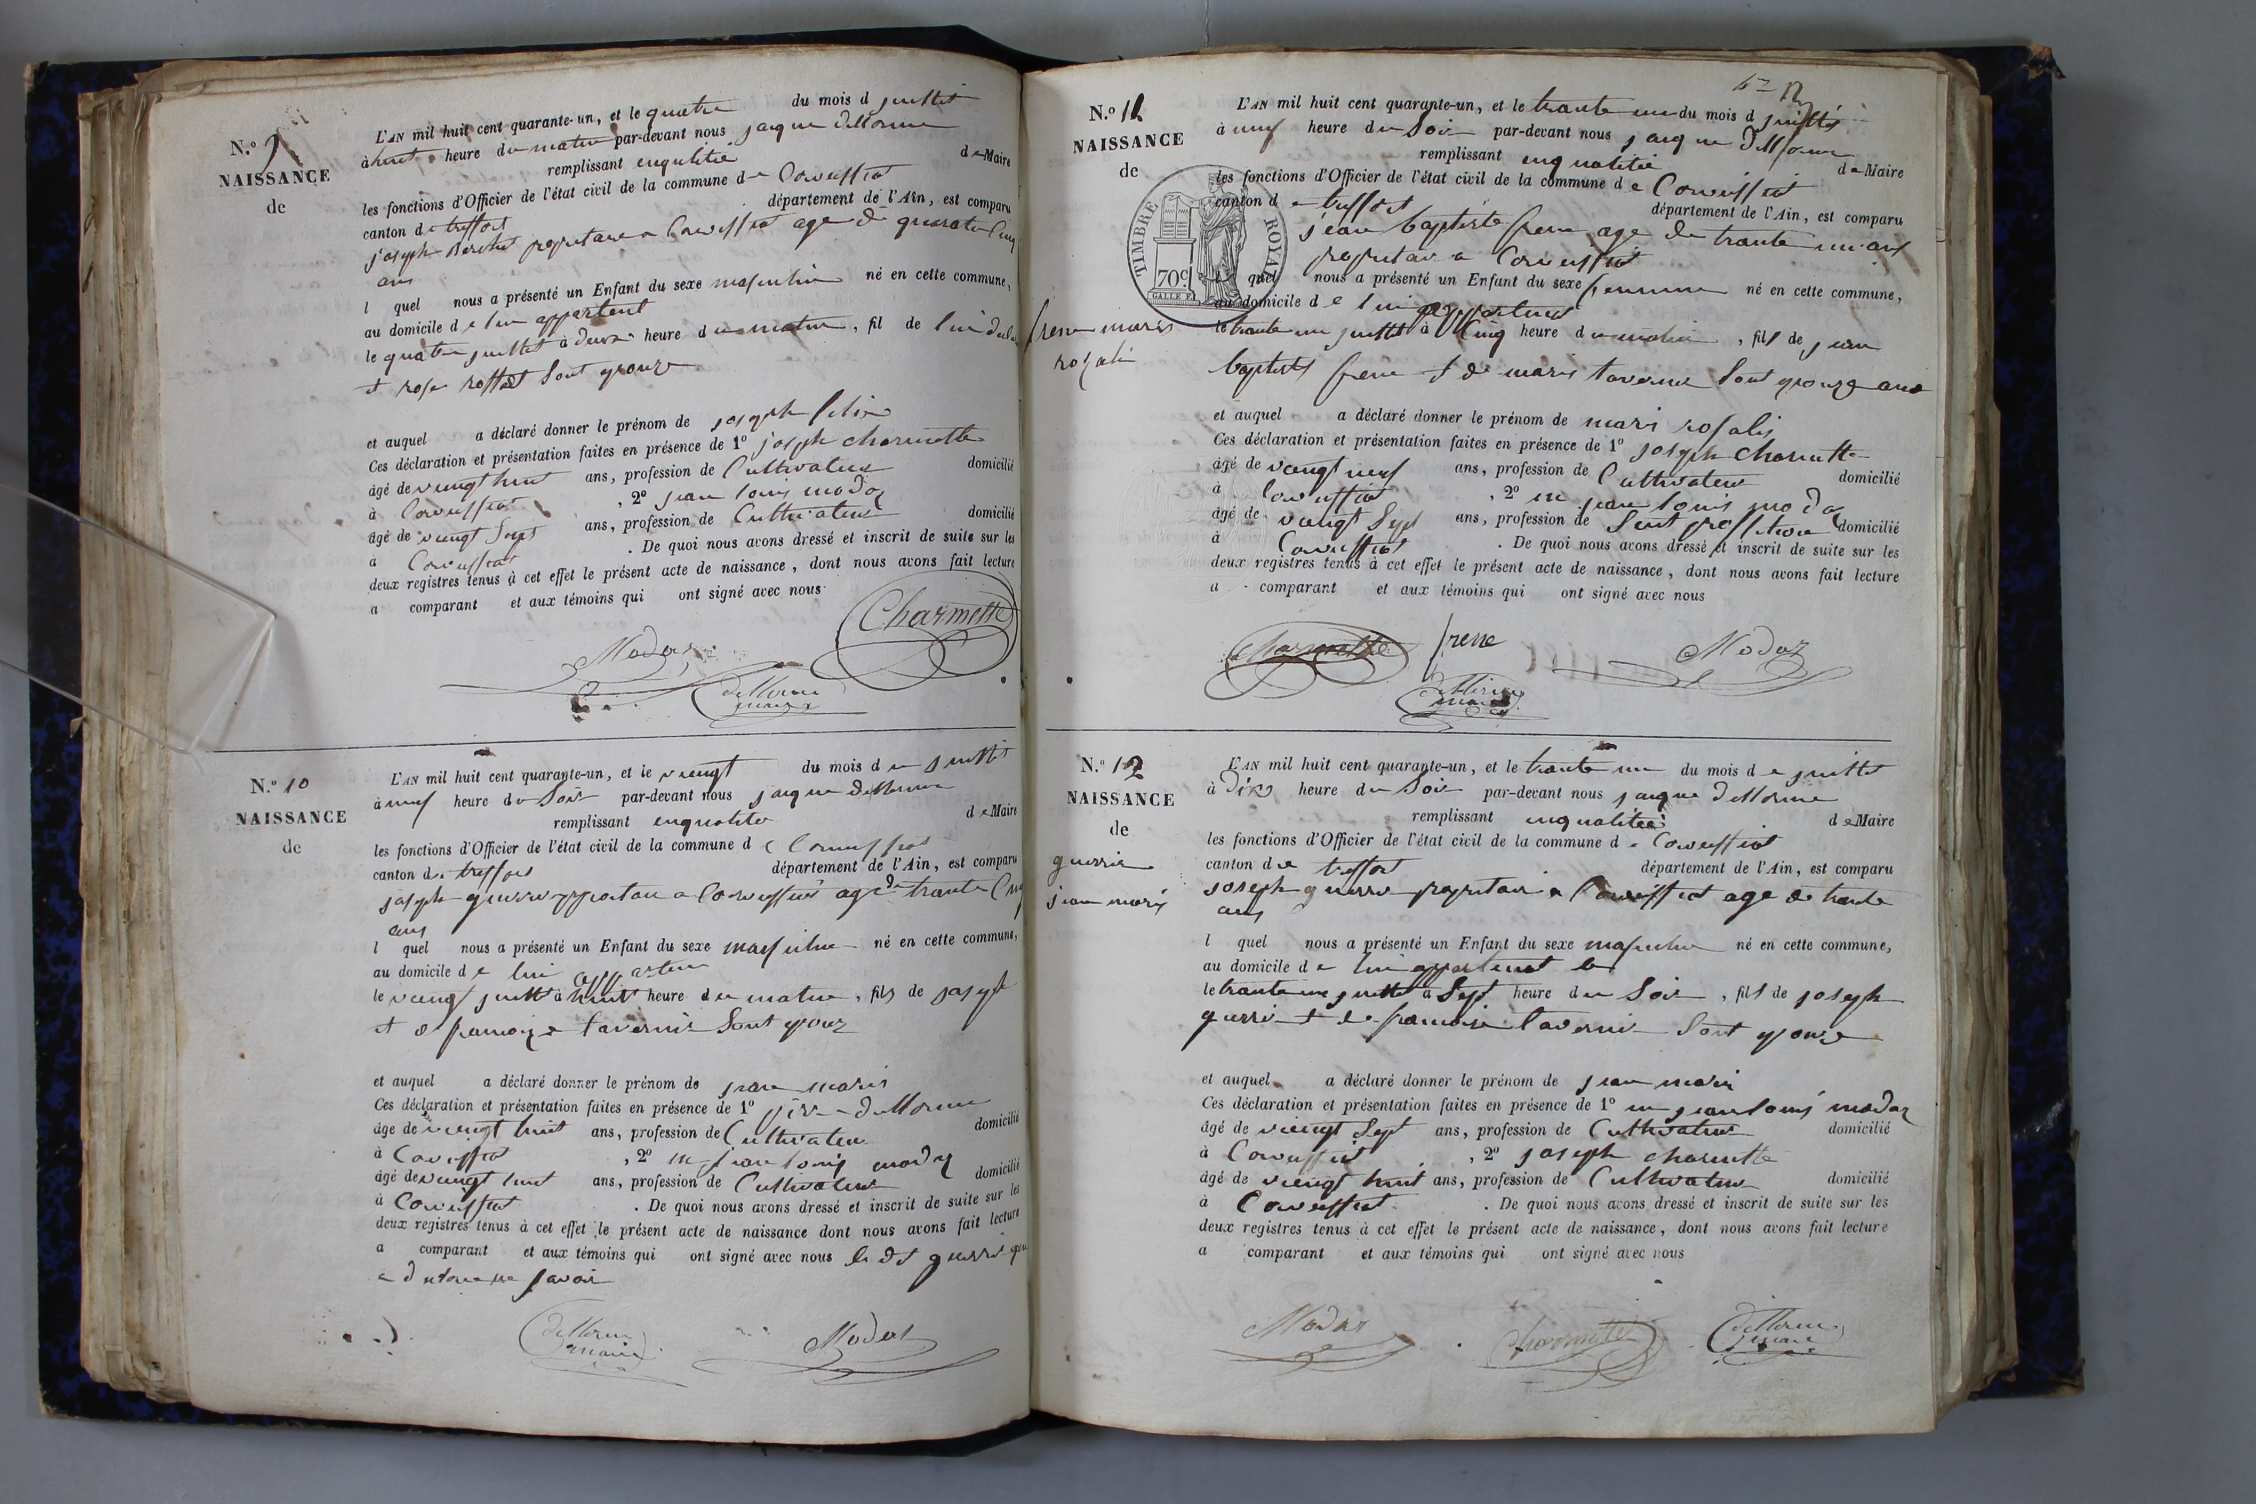 N.º 9
NAISSANCE
de
L'AN mil huit cent quarante-un, et le quatre du mois d juillet
à huit heure du matin par-devant nous jaque dellorme
remplissant enqualitée d e Maire
les fonctions d'Officier de l'état civil de la commune d e Corveissiat
canton de treffort département de l'Ain, est comparu
joseph propritaire a Corveissiat age de quarate Cinq
ans
l quel nous a présenté un Enfant du sexe masculin né en cette commune,
au domicile d e lui appartent
le quatre juillet à deux heure du matin, fil de lui
et rose sont
et auquel a déclaré donner le prénom de joseph felix
Ces déclaration et présentation faites en présence de 1º joseph charmette
âgé de vingt huit ans, profession de Cultivateur domicilié
à Corveissiat, 2º jean louis modas
âgé de vingt Sept ans, profession de Cultivateur domicilié
à Corveissiat. De quoi nous avons dressé et inscrit de suite sur les
deux registres tenus à cet effet le présent acte de naissance, dont nous avons fait lecture
a comparant et aux témoins qui ont signé avec nous
Charmette
Modas
dellorme
maire
N.º 10
NAISSANCE
de
L'AN mil huit cent quarante-un, et le vingt du mois d e juillet
à neuf heure du Soir par-devant nous jaque dellorme
remplissant enqualité d e Maire
les fonctions d'Officier de l'état civil de la commune d e Corveissiat
canton de treffort département de l'Ain, est comparu
joseph a Corveissiat age de trante Cinq
ans
l quel nous a présenté un Enfant du sexe masculin né en cette commune,
au domicile d e lui
le vingt juillet à huit heure du matin, fils de joseph
et de francoize tavernier Sont
et auquel a déclaré donner le prénom de jean marie
Ces déclaration et présentation faites en présence de 1º dellorme
âgé de vingt huit ans, profession de Cultivateur domicilié
à Corveissiat, 2º jean louis modas
âgé de vingt huit ans, profession de Cultivateur domicilié
à Corveissiat. De quoi nous avons dressé et inscrit de suite sur les
deux registres tenus à cet effet le présent acte de naissance dont nous avons fait lecture
a comparant et aux témoins qui ont signé avec nous
savoir
dellorme
maire
Modas
N.º 11
NAISSANCE
de
TIMBRE ROYAL
70 c
frene marie
rosalie
L'AN mil huit cent quarante-un, et le trante un du mois d juillet
à neuf heure du Soir par-devant nous jaque dellorme
remplissant enqualitée d e Maire
les fonctions d'Officier de l'état civil de la commune d e Corveissiat
canton d e treffort département de l'Ain, est comparu
jean baptiste frene age de trante un ans
propritair a Corveissiat
quel nous a présenté un Enfant du sexe né en cette commune,
au domicile d e lui
le trante un juillet à Cinq heure du matin, fils de jean
baptiste frene et de marie taverne Sont
et auquel a déclaré donner le prénom de marie rosalie
Ces déclaration et présentation faites en présence de 1º joseph charmette
âgé de vingt neuf ans, profession de Cultivateur domicilié
à Corveissiat, 2º jean louis modas
âgé de vingt Sept ans, profession de domicilié
à Corveissiat. De quoi nous avons dressé et inscrit de suite sur les
deux registres tenus à cet effet le présent acte de naissance, dont nous avons fait lecture
a comparant et aux témoins qui ont signé avec nous
Charmette frene Modas
dellorme
maire
N.º 12
NAISSANCE
de
guerrie
jean marie
L'AN mil huit cent quarante-un, et le trante un du mois d e juillet
à Dix heure du Soir par-devant nous jaque dellorme
remplissant enqualitée d e Maire
les fonctions d'Officier de l'état civil de la commune d e Corveissiat
canton de treffort département de l'Ain, est comparu
joseph propritair a Corveissiat age de trante
ans
l quel nous a présenté un Enfant du sexe masculin né en cette commune,
au domicile d e lui appartenant
le trante un juillet à Sept heure du Soir, fils de joseph
et de francoise tavernie Sont
et auquel a déclaré donner le prénom de jean marie
Ces déclaration et présentation faites en présence de 1º jean louis modas
âgé de vingt Sept ans, profession de Cultivateur domicilié
à Corveissiat, 2º joseph charmette
âgé de vingt huit ans, profession de Cultivateur domicilié
à Corveissiat. De quoi nous avons dressé et inscrit de suite sur les
deux registres tenus à cet effet le présent acte de naissance, dont nous avons fait lecture
a comparant et aux témoins qui ont signé avec nous
Modas Charmette dellorme
maire